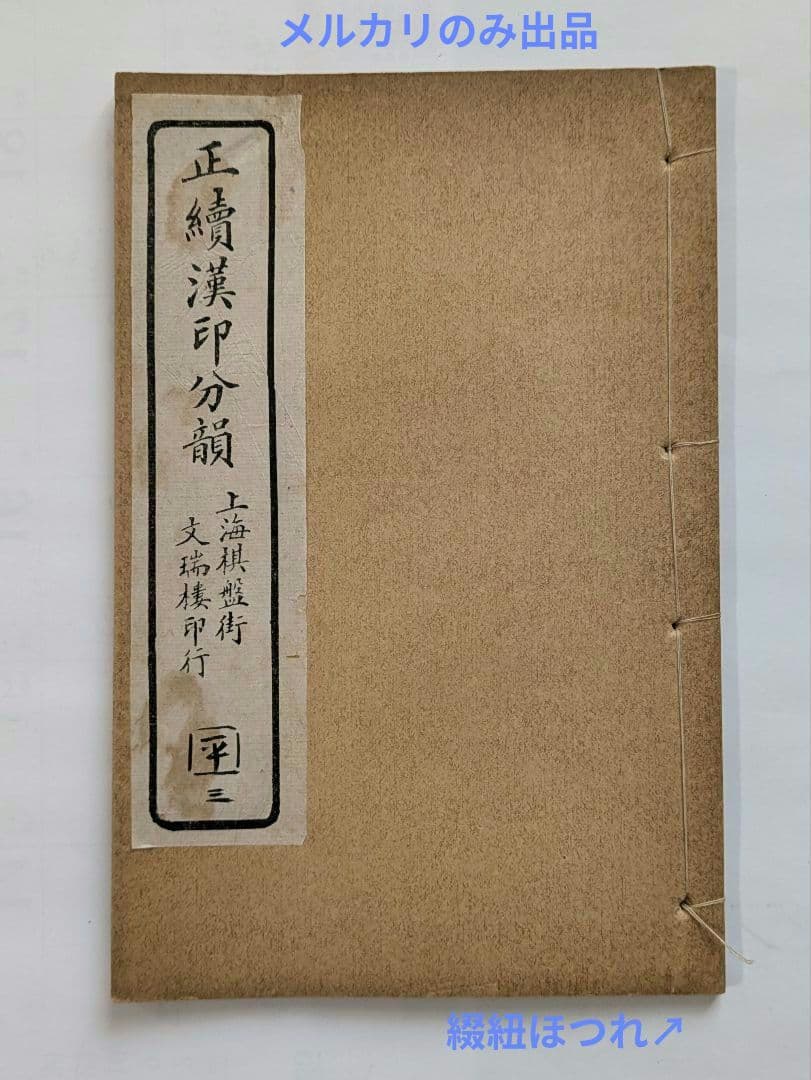 メルカリのみ出品
正續漢印分韻
上海棋盤街
文瑞樓印行
三
綴紐ほつれ↗